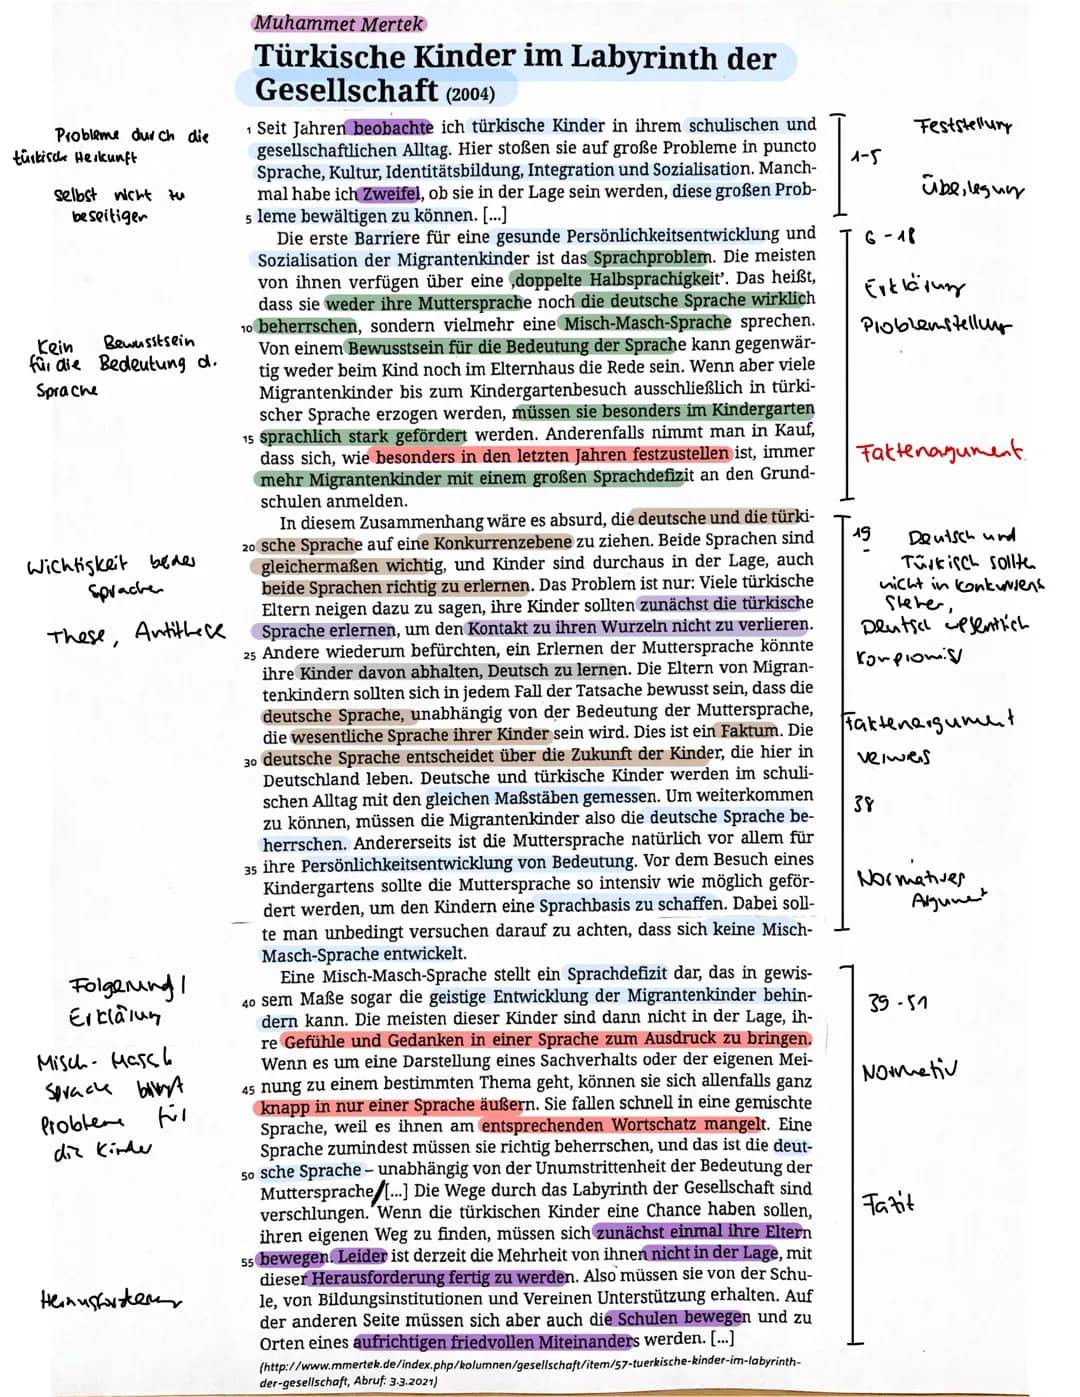 Muhammet Mertek
Türkische Kinder im Labyrinth der
Gesellschaft (2004)
1 Seit Jahren beobachte ich türkische Kinder in ihrem schulischen und
gesellschaftlichen Alltag. Hier stoßen sie auf große Probleme in puncto
Sprache, Kultur, Identitätsbildung, Integration und Sozialisation. Manch-
mal habe ich Zweifel, ob sie in der Lage sein werden, diese großen Prob-
5 leme bewältigen zu können. [...]
Die erste Barriere für eine gesunde Persönlichkeitsentwicklung und
Sozialisation der Migrantenkinder ist das Sprachproblem. Die meisten
von ihnen verfügen über eine ‚doppelte Halbsprachigkeit'. Das heißt,
dass sie weder ihre Muttersprache noch die deutsche Sprache wirklich
10 beherrschen, sondern vielmehr eine Misch-Masch-Sprache sprechen.
Von einem Bewusstsein für die Bedeutung der Sprache kann gegenwär-
tig weder beim Kind noch im Elternhaus die Rede sein. Wenn aber viele
Migrantenkinder bis zum Kindergartenbesuch ausschließlich in türki-
scher Sprache erzogen werden, müssen sie besonders im Kindergarten
15 sprachlich stark gefördert werden. Anderenfalls nimmt man in Kauf,
dass sich, wie besonders in den letzten Jahren festzustellen ist, immer
mehr Migrantenkinder mit einem großen Sprachdefizit an den Grund-
schulen anmelden.
In diesem Zusammenhang wäre es absurd, die deutsche und die türki-
20 sche Sprache auf eine Konkurrenzebene zu ziehen. Beide Sprachen sind
gleichermaßen wichtig, und Kinder sind durchaus in der Lage, auch
beide Sprachen richtig zu erlernen. Das Problem ist nur: Viele türkische
Eltern neigen dazu zu sagen, ihre Kinder sollten zunächst die türkische
Sprache erlernen, um den Kontakt zu ihren Wurzeln nicht zu verlieren.
25 Andere wiederum befürchten, ein Erlernen der Muttersprache könnte
ihre Kinder davon abhalten, Deutsch zu lernen. Die Eltern von Migran-
tenkindern sollten sich in jedem Fall der Tatsache bewusst sein, dass die
deutsche Sprache, unabhängig von der Bedeutung der Muttersprache,
die wesentliche Sprache ihrer Kinder sein wird. Dies ist ein Faktum. Die
30 deutsche Sprache entscheidet über die Zukunft der Kinder, die hier in
Deutschland leben. Deutsche und türkische Kinder werden im schuli-
schen Alltag mit den gleichen Maßstäben gemessen. Um weiterkommen
zu können, müssen die Migrantenkinder also die deutsche Sprache be-
herrschen. Andererseits ist die Muttersprache natürlich vor allem für
35 ihre Persönlichkeitsentwicklung von Bedeutung. Vor dem Besuch eines
Kindergartens sollte die Muttersprache so intensiv wie möglich geför-
dert werden, um den Kindern eine Sprachbasis zu schaffen. Dabei soll-
te man unbedingt versuchen darauf zu achten, dass sich keine Misch-
Masch-Sprache entwickelt.
Eine Misch-Masch-Sprache stellt ein Sprachdefizit dar, das in gewis-
40 sem Maße sogar die geistige Entwicklung der Migrantenkinder behin-
dern kann. Die meisten dieser Kinder sind dann nicht in der Lage, ih-
re Gefühle und Gedanken in einer Sprache zum Ausdruck zu bringen.
Wenn es um eine Darstellung eines Sachverhalts oder der eigenen Mei-
45 nung zu einem bestimmten Thema geht, können sie sich allenfalls ganz
knapp in nur einer Sprache äußern. Sie fallen schnell in eine gemischte
Sprache, weil es ihnen am entsprechenden Wortschatz mangelt. Eine
Sprache zumindest müssen sie richtig beherrschen, und das ist die deut-
50 sche Sprache – unabhängig von der Unumstrittenheit der Bedeutung der
Muttersprache/[...] Die Wege durch das Labyrinth der Gesellschaft sind
verschlungen. Wenn die türkischen Kinder eine Chance haben sollen,
ihren eigenen Weg zu finden, müssen sich zunächst einmal ihre Eltern
55 bewegen. Leider ist derzeit die Mehrheit von ihnen nicht in der Lage, mit
dieser Herausforderung fertig zu werden. Also müssen sie von der Schu-
le, von Bildungsinstitutionen und Vereinen Unterstützung erhalten. Auf
der anderen Seite müssen sich aber auch die Schulen bewegen und zu
Orten eines aufrichtigen friedvollen Miteinanders werden. [...]
(http://www.mmertek.de/index.php/kolumnen/gesellschaft/item/57-tuerkische-kinder-im-labyrinth-
der-gesellschaft, Abruf: 3.3.2021)
Probleme durch die
türkische Herkunft
selbst nicht zu
beseitigen
Kein Bewusstsein
für die Bedeutung d.
Sprache
Wichtigkeit beider
Sprachen
These, Antithese
Folgerung /
Erklärung
Misch-Masch
Sprache bringt
Probleme für
die Kinder
Herausforderung
Feststellung
1-5
Überlegung
6-18
Erklärung
Problemstellung
Faktenargument
19
Deutsch und
Türkisch sollten
nicht in Konkurrenz
stehen,
Deutsch wesentlich
Kompromiss
Faktenargument
verweis
38
Normatives
Argument
39-51
Normativ
Fazit